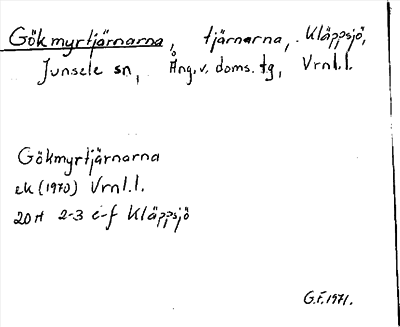 Gökmyrtjärnarna, tjärnarna, Kläppsjö,
Junsele sn, Ång.v. doms. tg, Vrnl.l.
Gökmyrtjärnarna
ek (1970) Vrnl.l.
20H 2-3 e-f Kläppsjö
G.F. 1971.